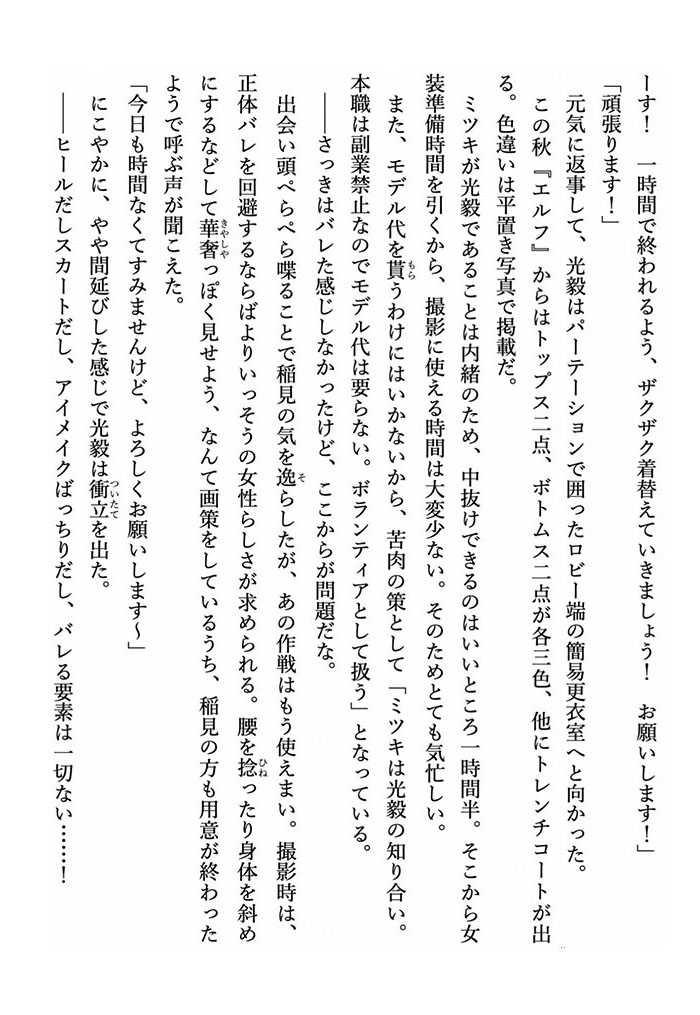 ーす！　一時間で終われるよう、ザクザク着替えていきましょう！　お願いします！」
「頑張ります！」
元気に返事して、光毅はパーテーションで囲ったロビー端の簡易更衣室へと向かった。
この秋『エルフ』からはトップス二点、ボトムス二点が各三色、他にトレンチコートが出
る。色違いは平置き写真で掲載だ。
ミツキが光毅であることは内緒のため、中抜けできるのはいいところ一時間半。そこから女
装準備時間を引くから、撮影に使える時間は大変少ない。そのためとても気忙しい。
また、モデル代を貰うわけにはいかないから、苦肉の策として「ミツキは光毅の知り合い。
本職は副業禁止なのでモデル代は要らない。ボランティアとして扱う」となっている。
――さっきはバレた感じしなかったけど、ここからが問題だな。
出会い頭ぺらぺら喋ることで稲見の気を逸らしたが、あの作戦はもう使えまい。撮影時は、
正体バレを回避するならばよりいっそうの女性らしさが求められる。腰を捻ったり身体を斜め
にするなどして華奢っぽく見せよう、なんて画策をしているうち、稲見の方も用意が終わった
ようで呼ぶ声が聞こえた。
「今日も時間なくてすみませんけど、よろしくお願いします～」
にこやかに、やや間延びした感じで光毅は衝立を出た。
――ヒールだしスカートだし、アイメイクばっちりだし、バレる要素は一切ない……！